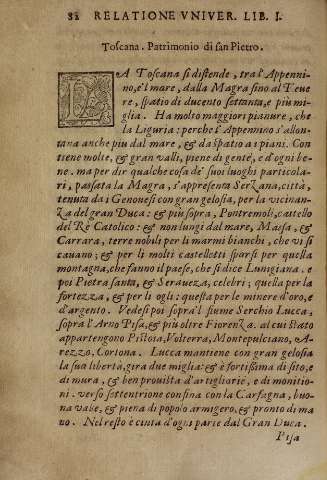 82 RELATIONE VNIVER. LIB. I.
Toscana. Patrimonio di san Pietro.
LA Toscana si distende, tra l'Appenni-
no, e'l mare, dalla Magra sino al Teue
re, spatio di ducento settanta, e più mi-
glia. Ha molto maggiori pianure, che
la Liguria: perche l'Appennino s'allon-
tana anche più dal mare, & dà spatio a i piani. Con
tiene molte, & gran valli, piene di gente, e d'ogni be-
ne. ma per dir qualche cosa de' suoi luoghi particola-
ri, passata la Magra, s'appresenta Serzana, città,
tenuta da i Genouesi con gran gelosia, per la vicinan-
za del gran Duca: & più sopra, Pontremoli, castello
del Rè Catolico: & non lungi dal mare, Massa, &
Carrara, terre nobili per li marmi bianchi, che vi si
cauano; & per li molti castelletti sparsi per quella
montagna, che fanno il paese, che si dice Lunigiana. e
poi Pietra santa, & Serauezza, celebri; quella per la
fortezza, & per li ogli: questa per le minere d'oro, e
d'argento. Vedesi poi sopra'l fiume Serchio Lucca,
sopra l'Arno Pisa, & più oltre Fiorenza. al cui stato
appartengono Pistoia, Volterra, Montepulciano, A-
rezzo, Cortona. Lucca mantiene con gran gelosia
la sua libertà, gira due miglia: & è fortissima di sito, e
di mura, & ben prouista d'artigliarie, e di monitio-
ni. verso settentrione confina con la Carfagna, buo-
na valle, & piena di popolo armigero, & pronto di ma
no. Nel resto è cinta d'ogni parte dal Gran Duca.
Pisa